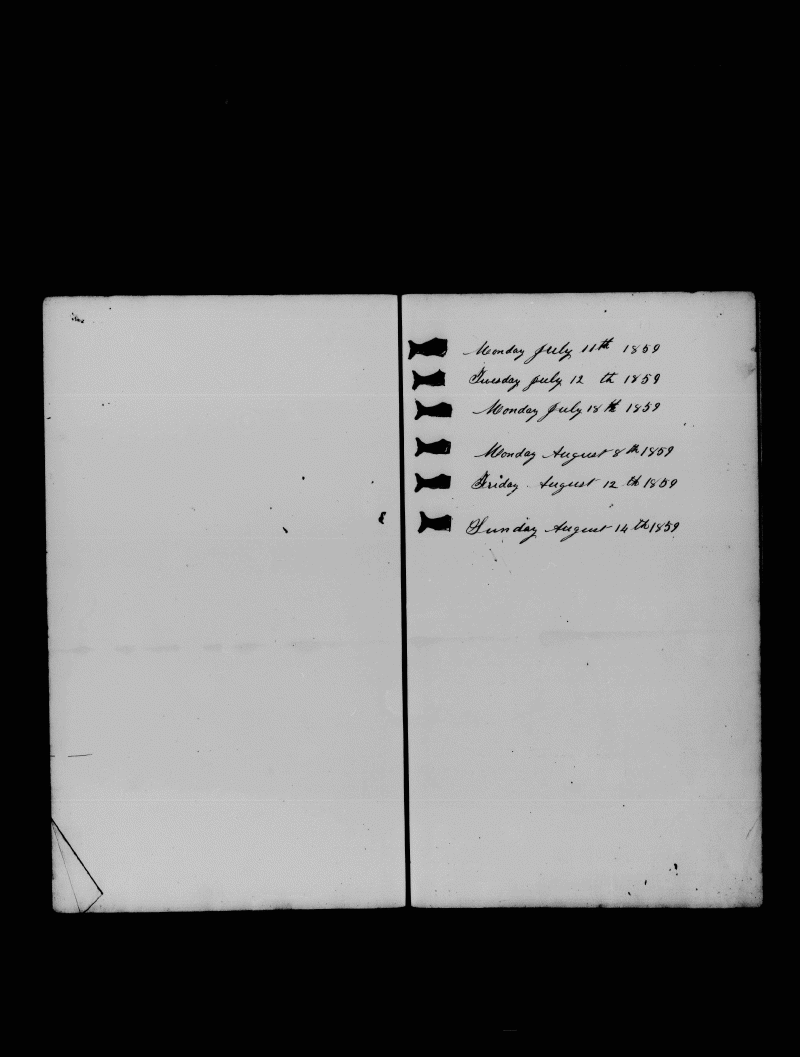 Monday July 11th 1859
Tuesday July 12 th 1859
Monday July 18th 1859
Monday August 8th 1859
Friday August 12 th 1859
Sunday August 14 th 1859